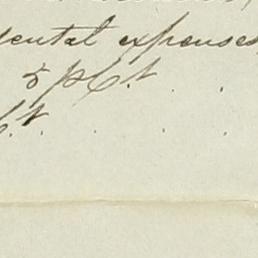 dental expenses
5 p Ct. . .
Ct. . . .